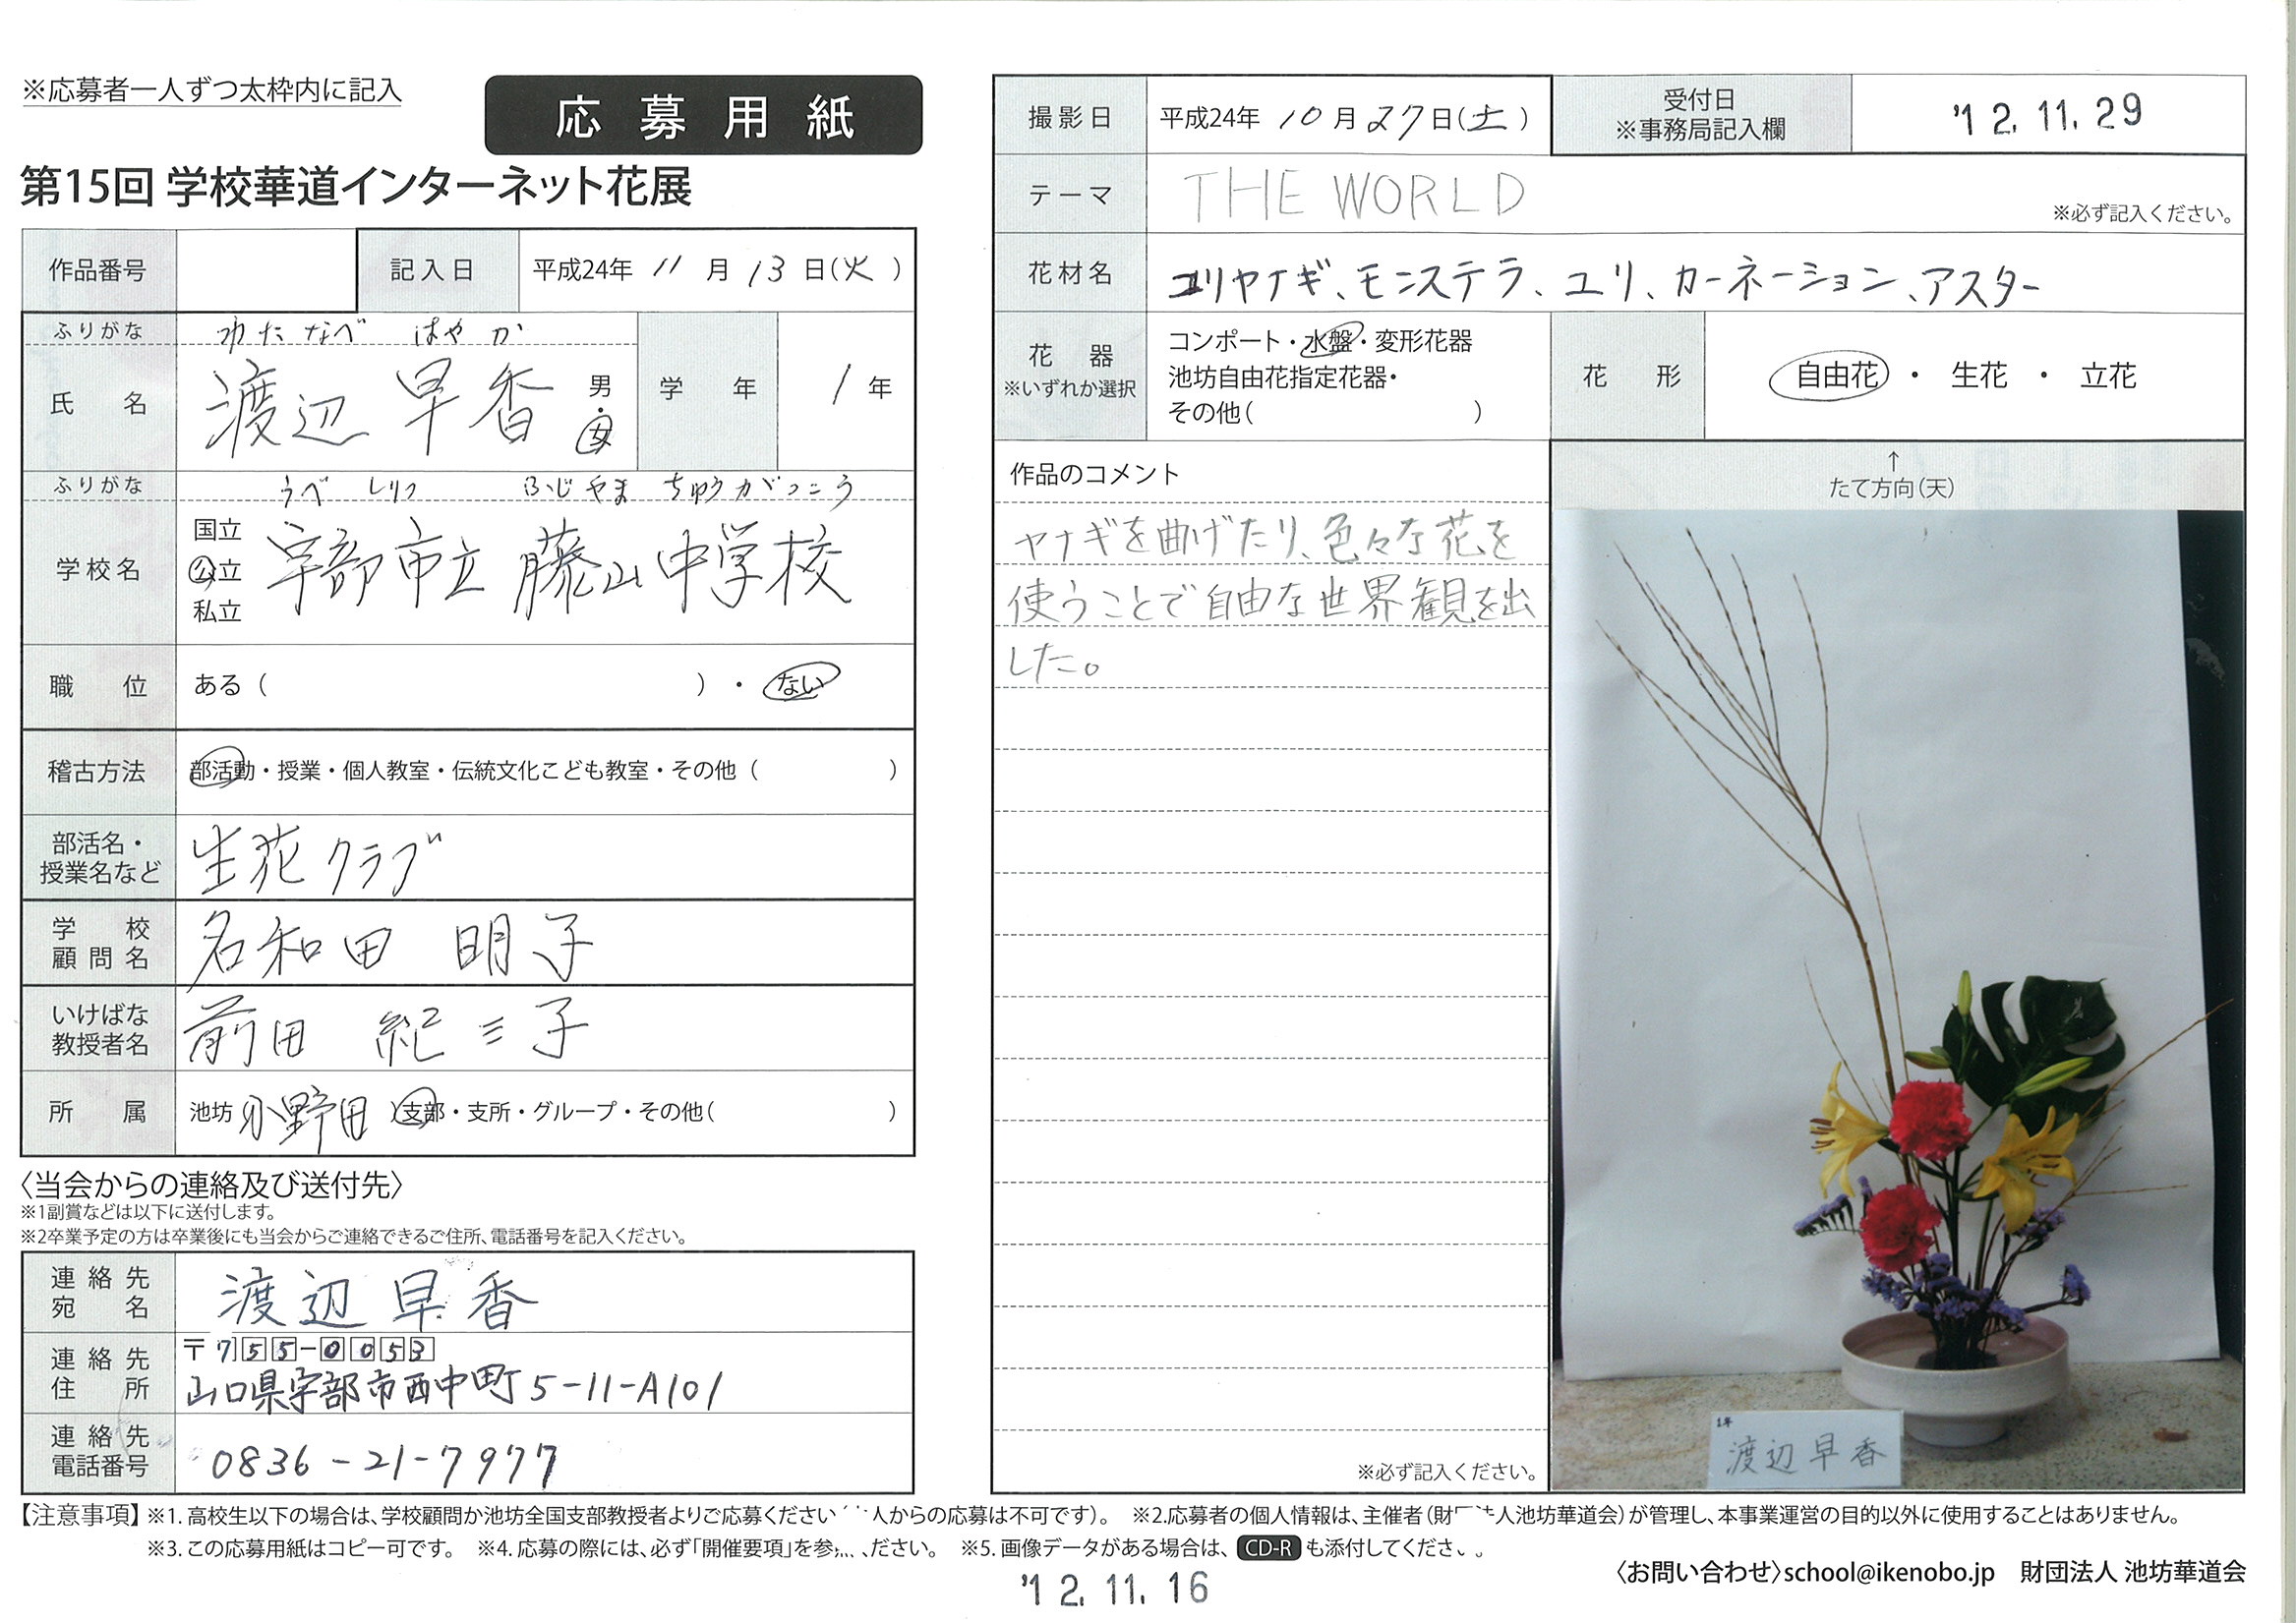 ※応募者一人ずつ太枠内に記入
応募用紙
第15回 学校華道インターネット花展
作品番号
記入日 平成24年 11月 13日(火)
ふりがな わたなべ はやか
氏名 渡辺 早香 男・女
学年 1年
ふりがな うべ しりつ ふじやま ちゅうがっこう
学校名 国立 公立 私立 宇部市立 藤山中学校
職位 ある( )・ない
稽古方法 部活動・授業・個人教室・伝統文化こども教室・その他( )
部活名・授業名など 生花クラブ
学校顧問名 名和田 明子
いけばな教授者名 前田 紀ミ子
所属 池坊 小野田 支部・支所・グループ・その他( )
〈当会からの連絡及び送付先〉
※1副賞などは以下に送付します。
※2卒業予定の方は卒業後にも当会からご連絡できるご住所、電話番号を記入ください。
連絡先宛名 渡辺 早香
連絡先住所 〒755-0053
山口県宇部市西中町5-11-A101
連絡先電話番号 0836-21-7977
撮影日 平成24年 10月 27日(土)
受付日
※事務局記入欄
'12.11.29
テーマ THE WORLD
※必ず記入ください。
花材名 ユリヤナギ、モンステラ、ユリ、カーネーション、アスター
花器
※いずれか選択
コンポート・水盤・変形花器
池坊自由花指定花器・
その他( )
花形 自由花・生花・立花
作品のコメント
ヤナギを曲げたり、色々な花を
使うことで自由な世界観を出
した。
※必ず記入ください。
↑
たて方向(天)
1年
渡辺早香
【注意事項】※1. 高校生以下の場合は、学校顧問か池坊全国支部教授者よりご応募ください 人からの応募は不可です)。 ※2.応募者の個人情報は、主催者(財 人池坊華道会)が管理し、本事業運営の目的以外に使用することはありません。
※3. この応募用紙はコピー可です。 ※4. 応募の際には、必ず「開催要項」を参 ださい。 ※5. 画像データがある場合は、 CD-R も添付してくださ
'12.11.16
〈お問い合わせ〉school@ikenobo.jp 財団法人 池坊華道会